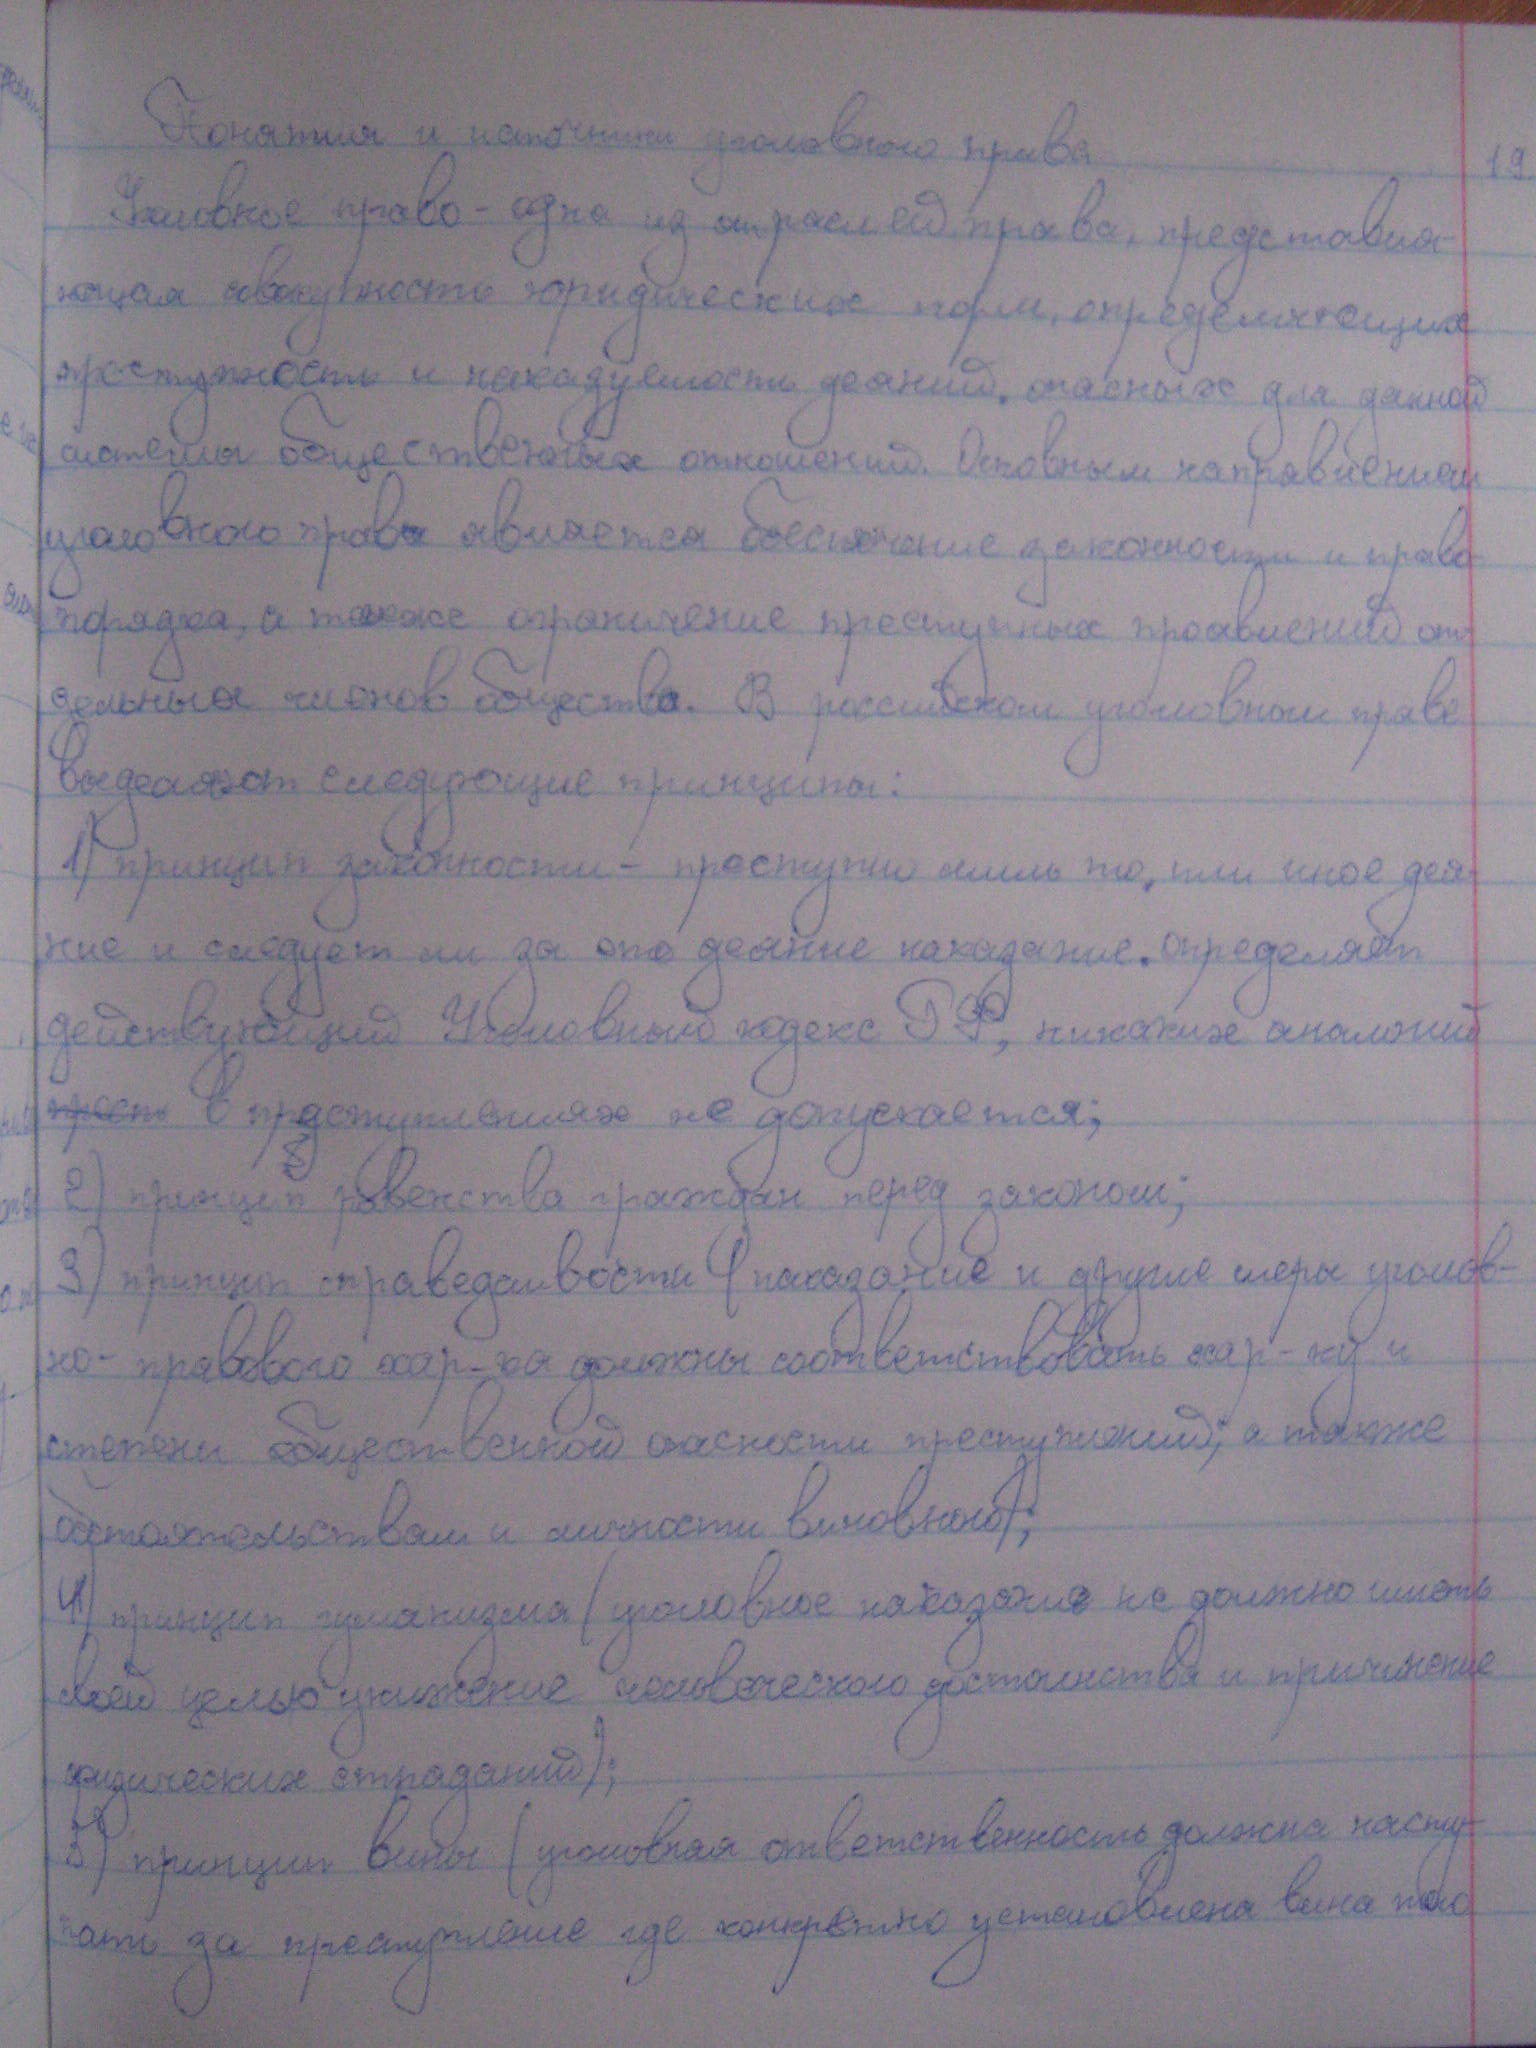 Понятия и источники уголовного права
19.
Уголовное право - одна из отраслей права, представля-
ющая совокупность юридических норм, определяющих
преступность и наказуемость деяний, опасных для данной
системы общественных отношений. Основным направлением
уголовного права является обеспечение законности и право-
порядка, а также ограничение преступных проявлений от-
дельных членов общества. В российском уголовном праве
выделяют следующие принципы:
1) принцип законности - преступно лишь то, или иное дея-
ние и следует ли за это деяние наказание. определяет
действующий Уголовный кодекс РФ, никаких аналогий
в преступлениях не допускается;
2) принцип равенства граждан перед законом;
3) принцип справедливости (наказание и другие меры уголов-
но-правового хар-ка должны соответствовать хар-ку и
степени общественной опасности преступлений; а также
обстоятельствам и личности виновного);
4) принцип гуманизма (уголовное наказание не должно иметь
своей целью унижение человеческого достоинства и причинение
физических страданий);
5) принцип вины (уголовная ответственность должна насту-
пать за преступление где конкретно установлена вина того